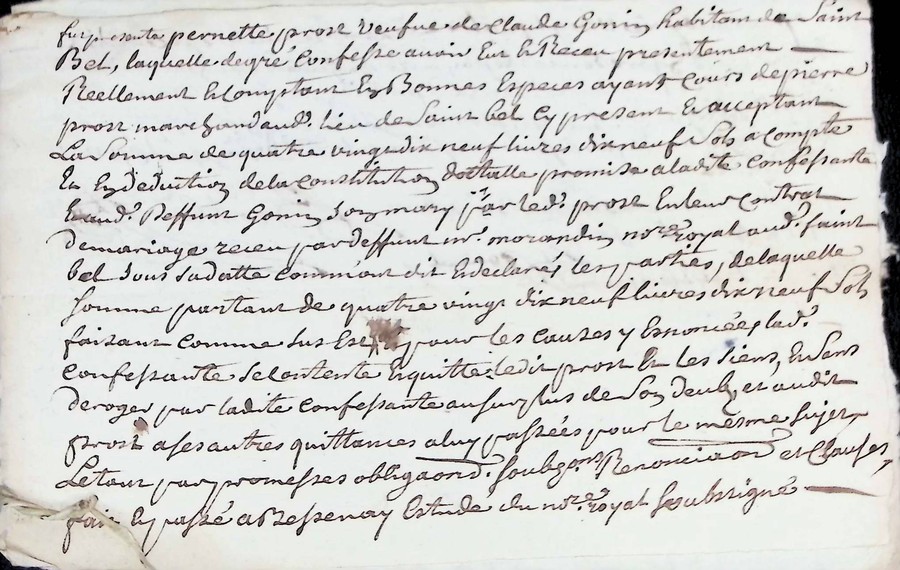 fut presenta pernette prost veufve de Claude Gonin habitant de Saint
Bel, laquelle de gré Confesse avoir Eu et Receu presentement
Reellement et Comptant En Bonnes Especes ayant Cours de pierre
prost marchand aud. lieu de Saint bel Cy present et acceptant
La Somme de quatre vingt dix neuf livres dix neuf Sols a Compte
Et En deduction de la Constitution dottalle promise a ladite Confessante
Et aud. Deffunt Gonin Son mary par led. prost En leur Contrat
de mariage receu par deffunt mr. morandin nore. royal aud. Saint
bel Sous Sa datte comm'ont dit Et declaré les parties, de laquelle
Somme partant de quatre vingt dix neuf livres dix neuf Sols
faisant comme Sus Est pour les causes y Enoncées lad.
Confessante Se Contente Et quitte ledit prost Et les Siens, En Sens
deroger par ladite Confessante au Surplus de Son deub, et audit
prost a ses autres quittances a luy passées pour le mesme Sujet,
Le tout par promesses obligaons. Soubgons. Renonciaon et Clauses,
fait Et passé a Bessenay Estude du nore. royal Soubsigné